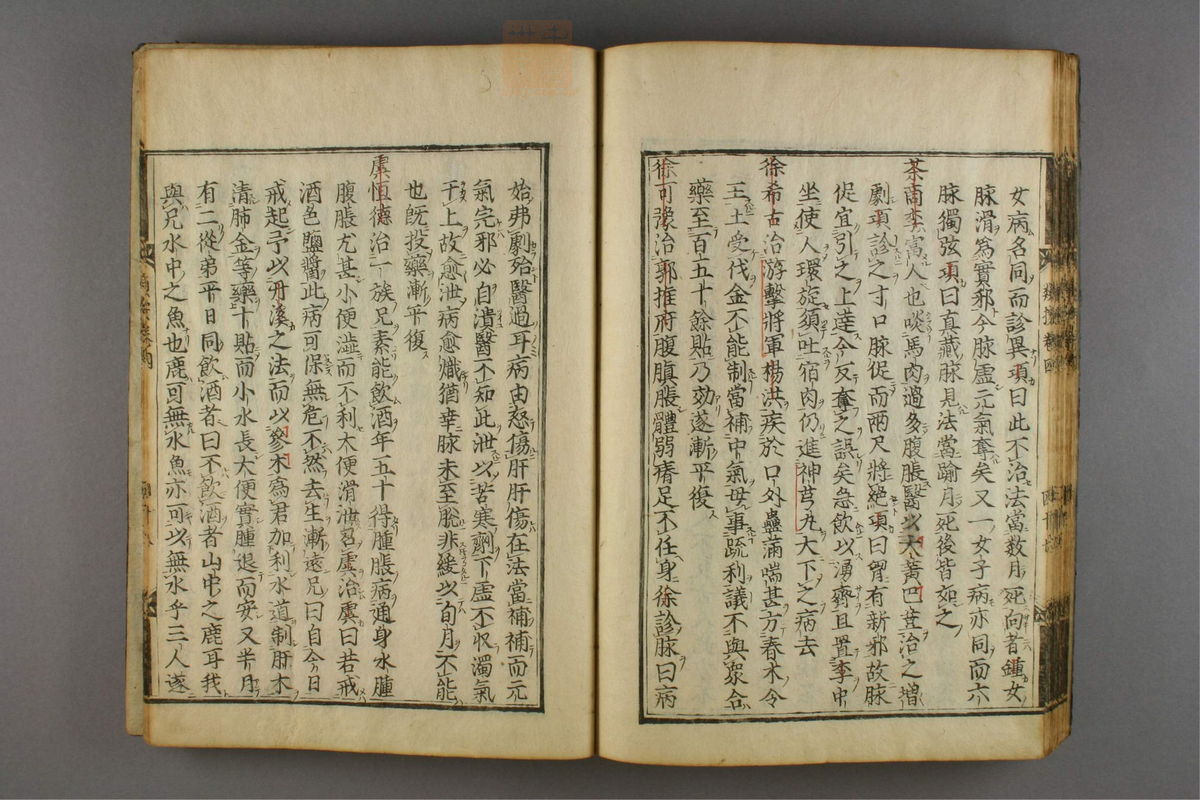 女病名同而診異項曰此不治法當数月死向者鍾女
脉滑爲實邪今脉虛元氣奪矣又一女子病亦同而六
脉獨弦項曰真藏脉見法當踰月死後皆如之
茶商李富人也啖馬肉過多腹脹醫以大黄巴荳治之增
劇項診之寸口脉促而兩尺將絶項曰胃有新邪故脉
促宜引之上達今反奪之誤矣急飲以湧齊且置李中
坐使人環旋須吐宿肉仍進神芎丸大下之病去
徐希古治游擊將軍楊洪疾於口外蠱滿喘甚方春木令
王土受伐金不能制當補中氣毋事疏利議不與眾合
藥至百五十餘貼乃効遂漸平復
徐可豫治郭推府腹䐜脹體弱瘠足不任身徐診脉曰病
始弗劇殆醫過耳病由怒傷肝肝傷在法當補補而元
氣完邪必自潰醫不知此泄以苦寒劑下虛不収濁氣
干上故愈泄病愈熾猶幸脉未至脫非緩以旬月不能
也旣投藥漸平復
虞恒德治一族兄素能飲酒年五十得腫脹病通身水腫
腹脹尤甚小便澁而不利大便滑泄召虞治虞曰若戒
酒色鹽醬此病可保無危不然去生漸遠兄曰自今日
戒起予以丹溪之法而以參朮爲君加利水道制肝木
清肺金等藥十貼而小水長大便實腫退而安又半月
有二從弟平日同飲酒者曰不飲酒者山中之鹿耳我
與兄水中之魚也鹿可無水魚亦可以無水乎三人遂